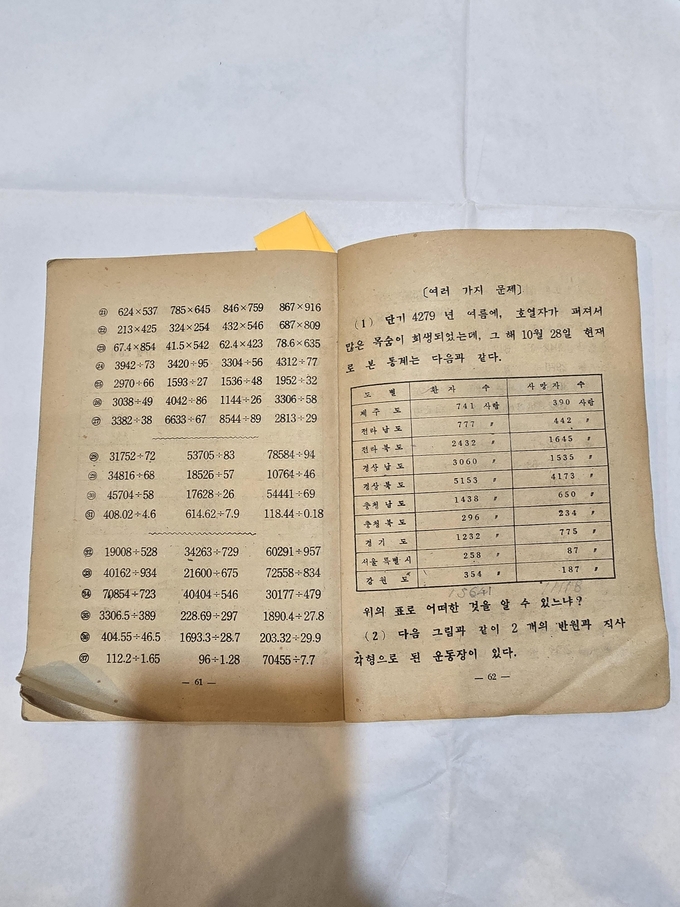 ㉑ 624×537 785×645 846×759 867×916
㉒ 213×425 324×254 432×546 687×809
㉓ 67.4×854 41.5×542 62.4×423 78.6×635
㉔ 3942÷73 3420÷95 3304÷56 4312÷77
㉕ 2970÷66 1593÷27 1536÷48 1952÷32
㉖ 3038÷49 4042÷86 1144÷26 3306÷58
㉗ 3382÷38 6633÷67 8544÷89 2813÷29
㉘ 31752÷72 53705÷83 78584÷94
㉙ 34816÷68 18526÷57 10764÷46
㉚ 45704÷58 17628÷26 54441÷69
㉛ 408.02÷4.6 614.62÷7.9 118.44÷0.18
㉜ 19008÷528 34263÷729 60291÷957
㉝ 40162÷934 21600÷675 72558÷834
㉞ 70854÷723 40404÷546 30177÷479
㉟ 3306.5÷389 228.69÷297 1890.4÷27.8
㊱ 404.55÷46.5 1693.3÷28.7 203.32÷29.9
㊲ 112.2÷1.65 96÷1.28 70455÷7.7
— 61 —
〔여러 가지 문제〕
(1) 단기 4279 년 여름에, 호열자가 퍼져서
많은 목숨이 희생되었는데, 그 해 10월 28일 현재
로 본 통계는 다음과 같다.
도 별 환 자 수 사 망 자 수
제 주 도 741 사람 390 사람
전라 남 도 777 〃 442 〃
전라 북 도 2432 〃 1645 〃
경상 남 도 3060 〃 1535 〃
경상 북 도 5153 〃 4173 〃
충청 남 도 1438 〃 650 〃
충청 북 도 296 〃 234 〃
경 기 도 1232 〃 775 〃
서울 특별 시 258 〃 87 〃
강 원 도 354 〃 187 〃
15641
위의 표로 어떠한 것을 알 수 있느냐?
(2) 다음 그림과 같이 2 개의 반원과 직사
각형으로 된 운동장이 있다.
— 62 —